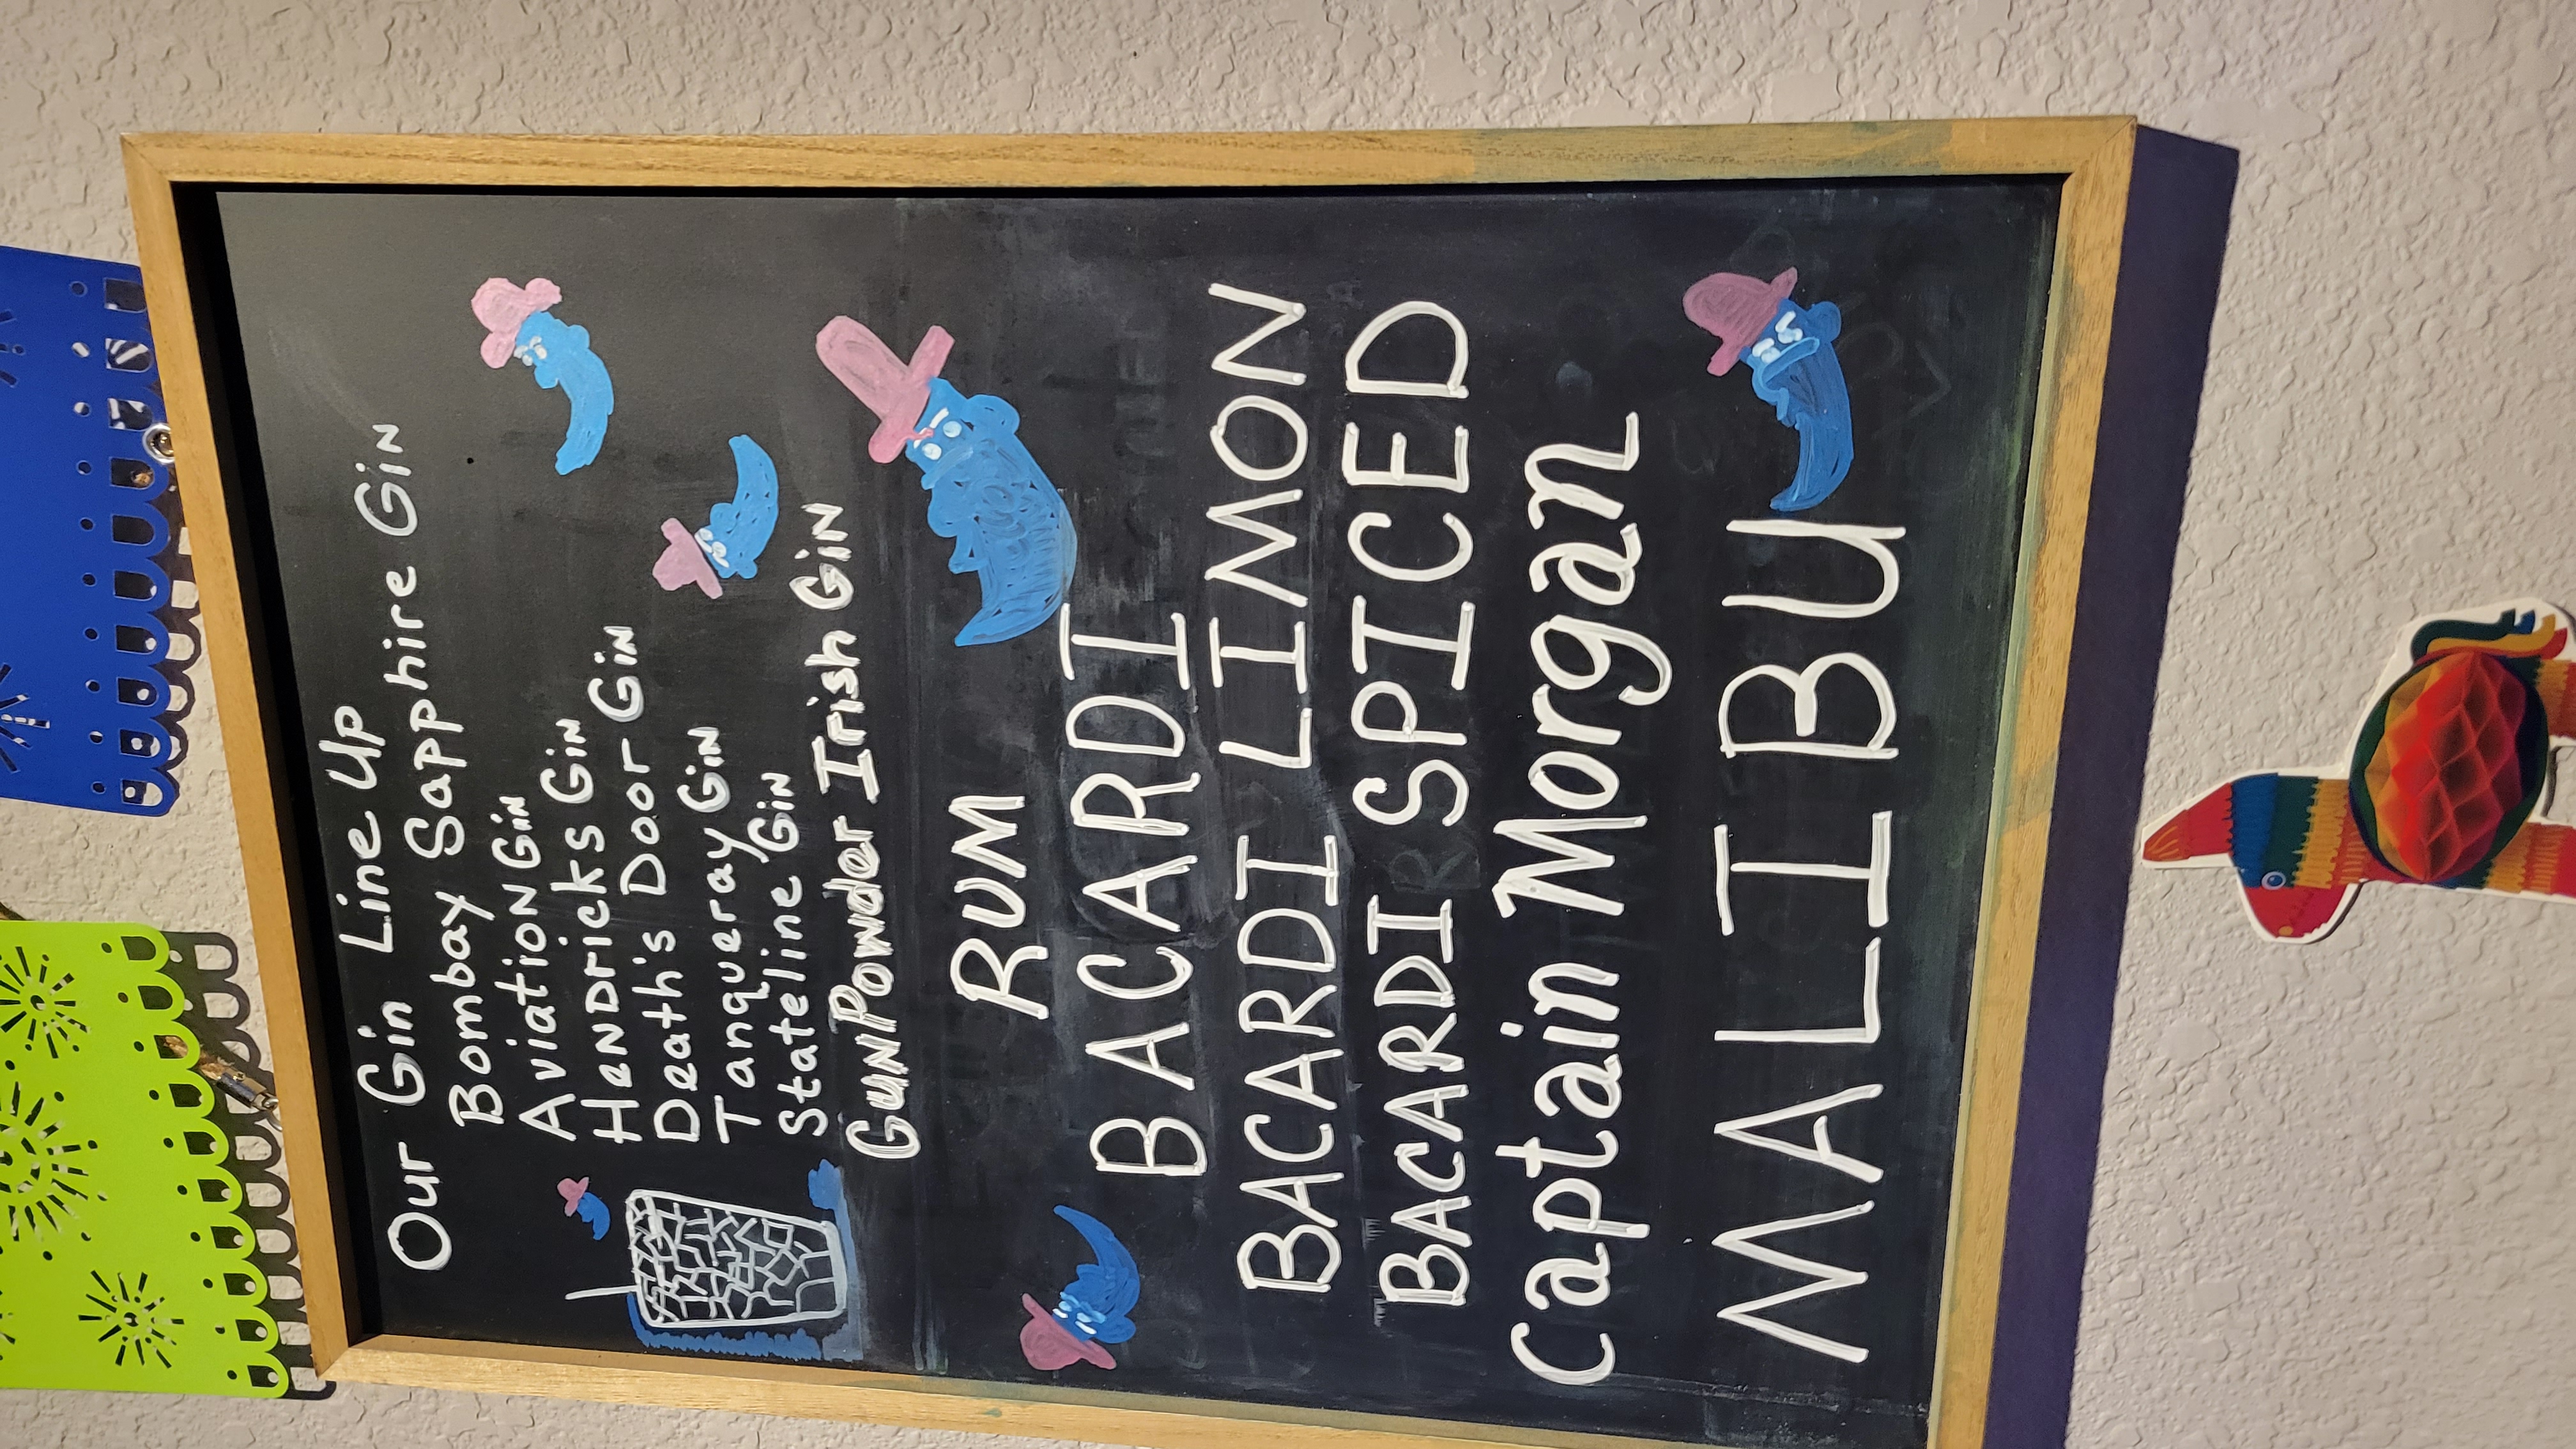 Our Gin Line Up
Bombay Sapphire Gin
Aviation Gin
Hendricks Gin
Death's Door Gin
Tanqueray Gin
Stateline Gin
GunPowder Irish Gin
RUM
BACARDI
BACARDI LIMON
BACARDI SPICED
Captain Morgan
MALIBU